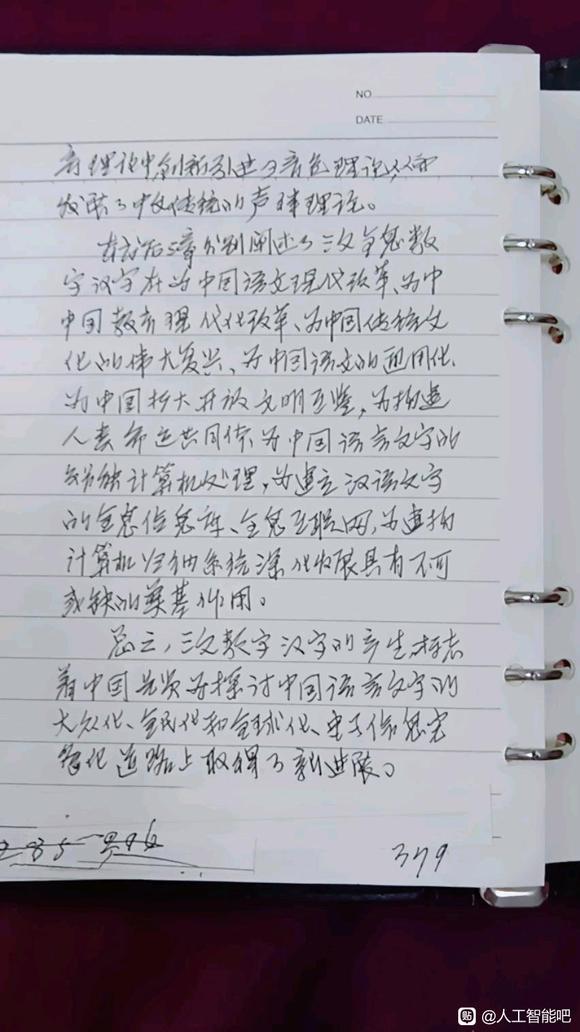 NO
DATE
音理论中创新引进了音色理论从而
发展了中文传统的声律理论。
在最后三章分别阐述了三文全息数
字汉字在为中国语文现代改革、为中
中国教育现代化改革、为中国传统文
化的伟大复兴、为中国语文的通用化、
为中国扩大开放文明互鉴,为构建
人类命运共同体为中国语言文字的
智能计算机处理,为建立汉语文字
的全息信息库、全息互联网,为建构
计算机归纳系统深化发展具有不可
或缺的奠基作用。
总之,三文数字汉字的产生标志
着中国先贤为探讨中国语言文字的
大众化、全民化和全球化、电子信息
化道路上取得了新进展。
379
贴 @人工智能吧